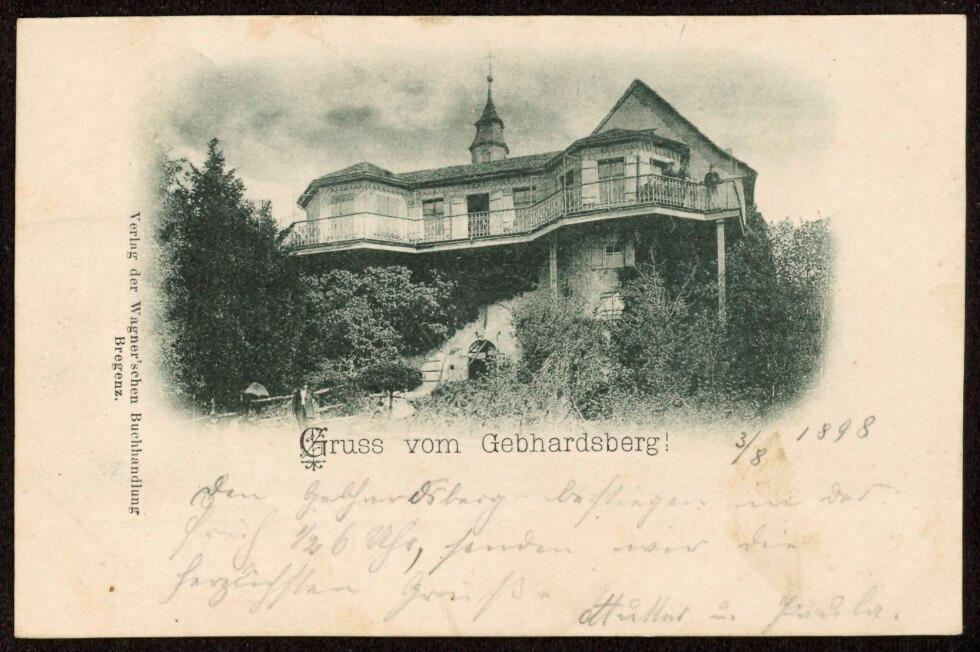 Verlag der Wagner'schen Buchhandlung
Bregenz.
Gruss vom Gebhardsberg!
3/8 1898
Den Gebhardsberg bestiegen in der
früh 1/2 6 Uhr, senden wir die
herzlichsten Grüße
Mutter u. Paula.